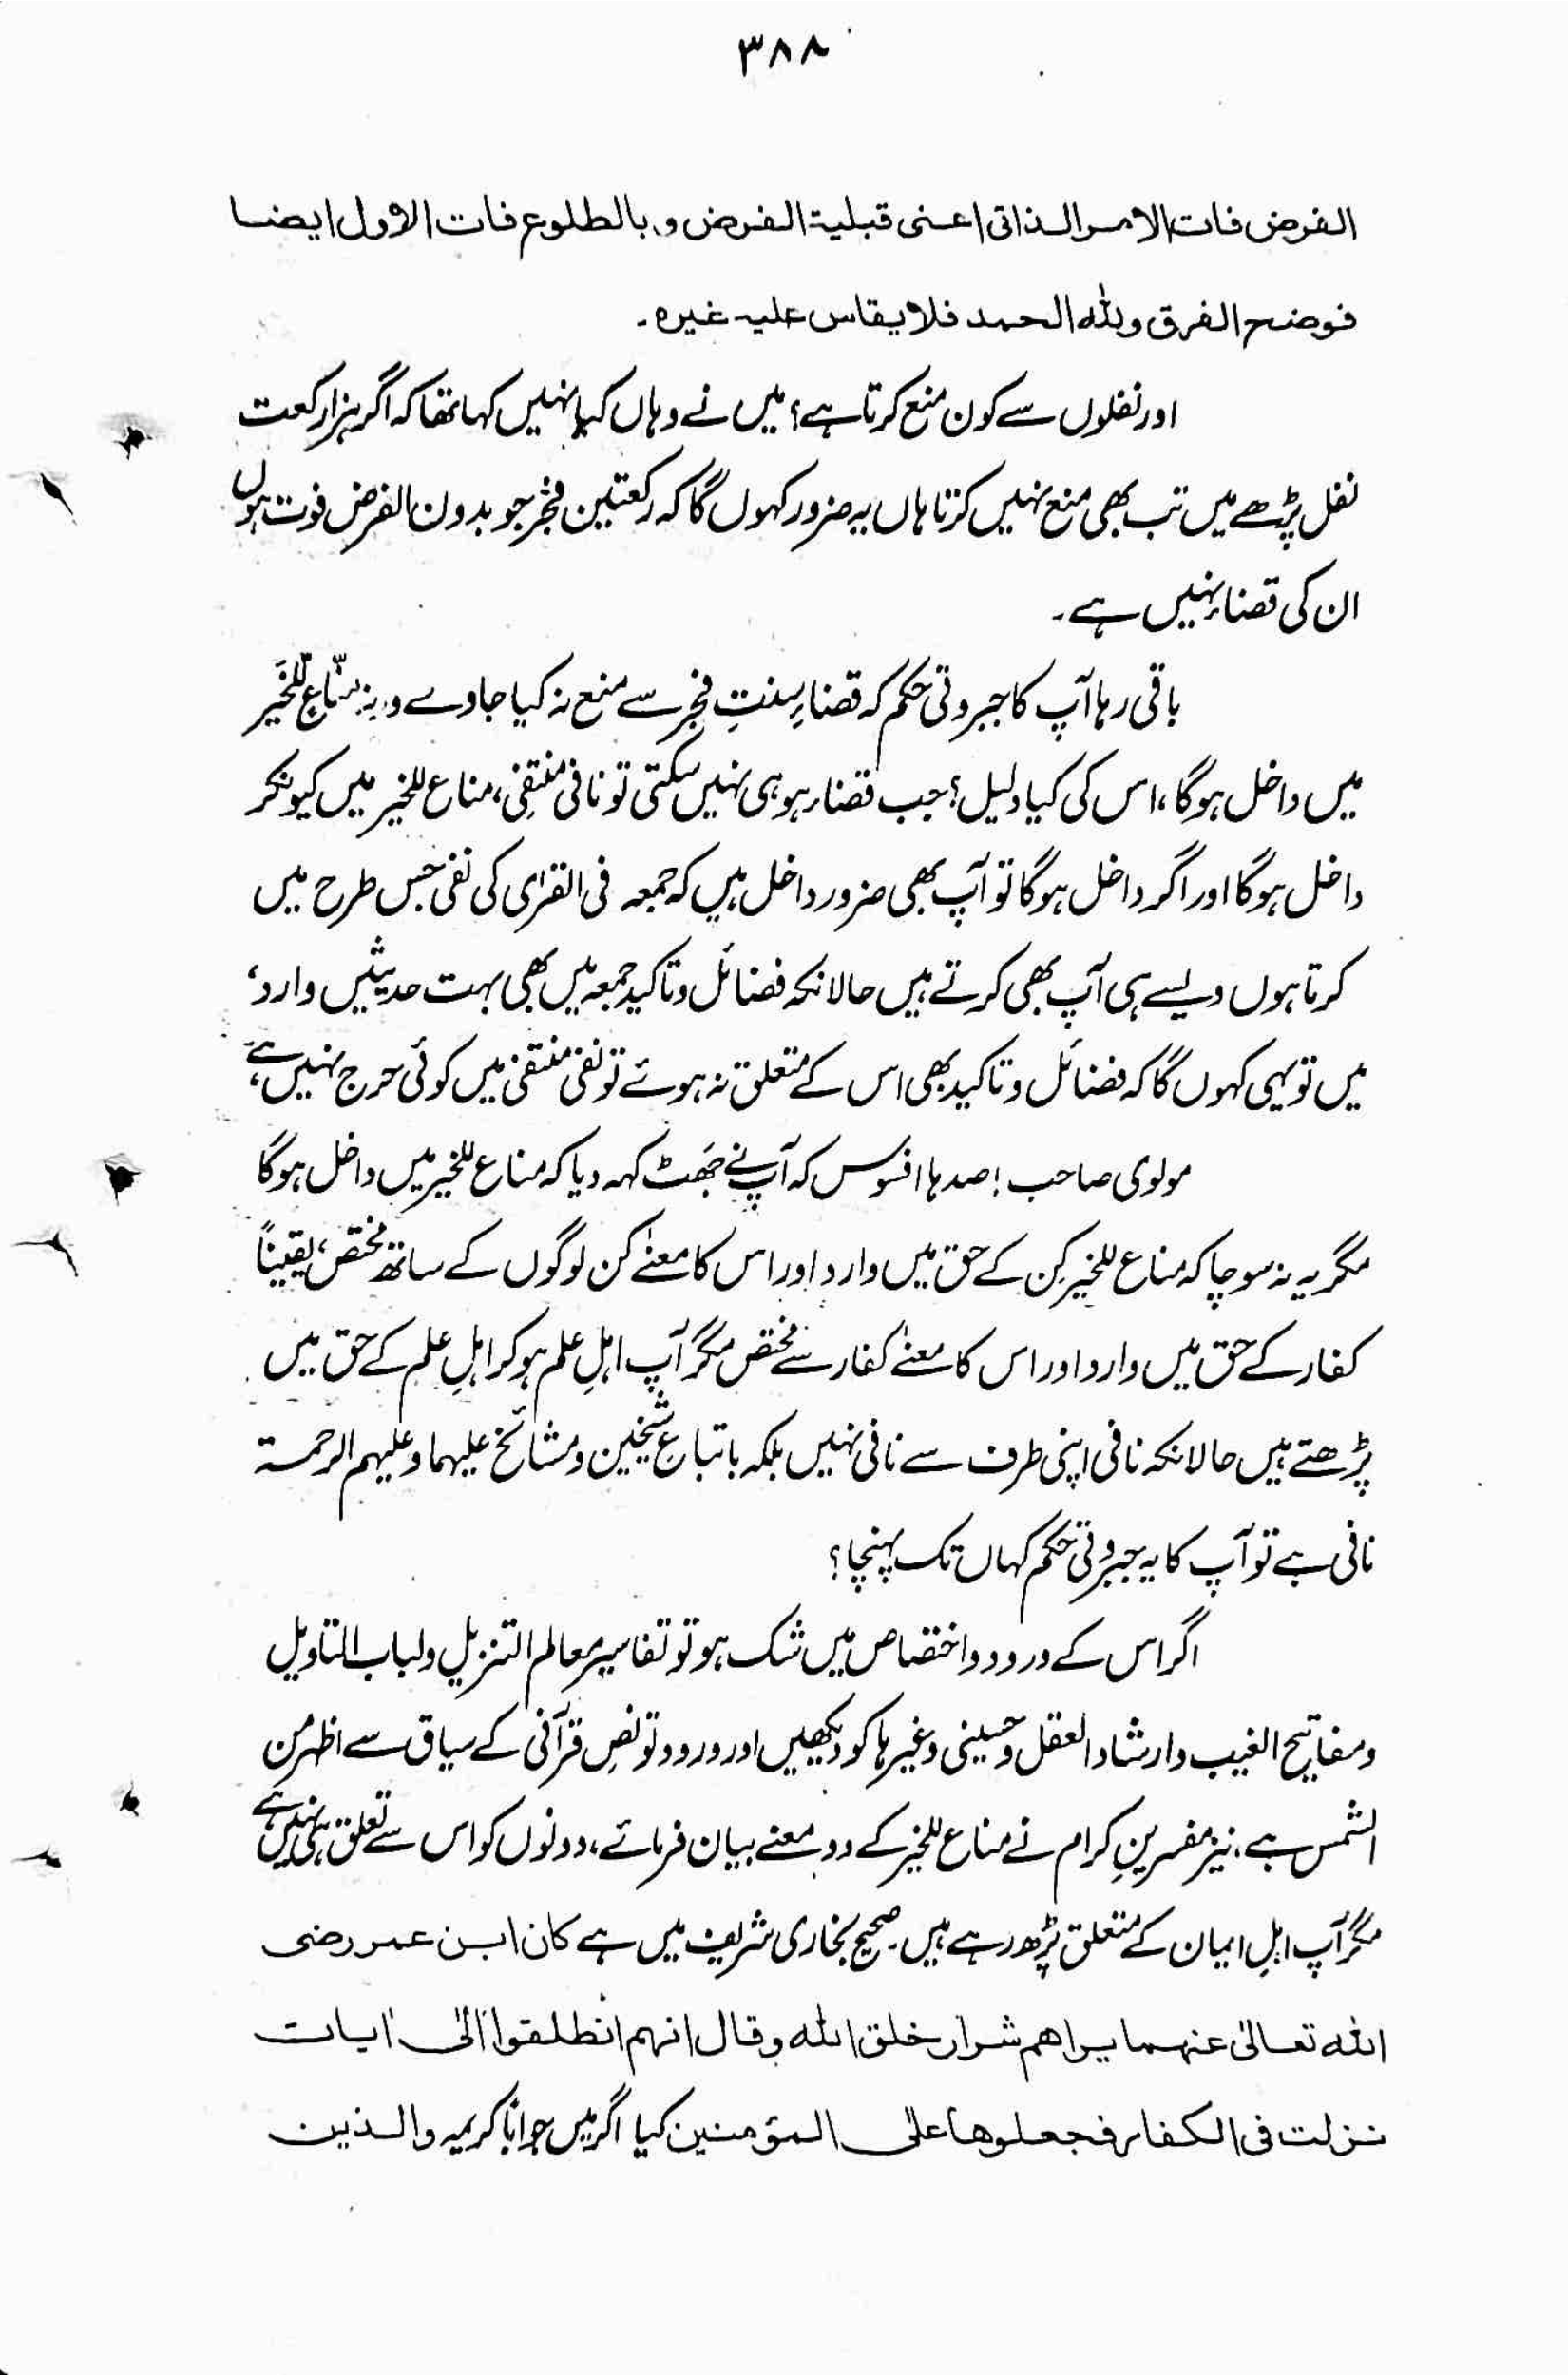 ٣٨٨
الفرض فات الامر الذاتی اعنی قبلیة الفرض و بالطلوع فات الاول ایضا
فوضح الفرق وللہ الحمد فلا یقاس علیہ غیرہ۔
اور نفلوں سے کون منع کرتا ہے؟ میں نے وہاں کیا نہیں کہا تھا کہ اگر ہزار رکعت
نفل پڑھے میں تب بھی منع نہیں کرتا ہاں یہ ضرور کہوں گا کہ رکعتین فجر جو بدون الفرض فوت ہوں
ان کی قضاء نہیں ہے۔
باقی رہا آپ کا جبروتی حکم کہ قضاءِ سنتِ فجر سے منع نہ کیا جاوے ورنہ منّاعٍ لّلخَیر
میں داخل ہوگا، اس کی کیا دلیل؟ جب قضاء ہو ہی نہیں سکتی تو نافی منتفِی، مناع للخیر میں کیونکر
داخل ہوگا اور اگر داخل ہوگا تو آپ بھی ضرور داخل ہیں کہ جمعہ فی القرٰی کی نفی جس طرح میں
کرتا ہوں ویسے ہی آپ بھی کرتے ہیں حالانکہ فضائل و تاکید جمعہ میں بھی بہت حدیثیں وارد،
میں تو یہی کہوں گا کہ فضائل و تاکید بھی اس کے متعلق نہ ہوئے تو نفی منتفی میں کوئی حرج نہیں ہے،
مولوی صاحب! صدہا افسوس کہ آپ نے جَھٹ کہہ دیا کہ مناع للخیر میں داخل ہوگا
مگر یہ نہ سوچا کہ مناع للخیر کِن کے حق میں وارد اور اس کا معنےٰ کن لوگوں کے ساتھ مختص، یقیناً
کفار کے حق میں وارد اور اس کا معنےٰ کفار سے مختص مگر آپ اہلِ علم ہو کر اہلِ علم کے حق میں
پڑھتے ہیں حالانکہ نافی اپنی طرف سے نافی نہیں بلکہ باتباع شیخین و مشائخ علیہما وعلیہم الرحمۃ
نافی ہے تو آپ کا یہ جبروتی حکم کہاں تک پہنچا؟
اگر اس کے ورود و اختصاص میں شک ہو تو تفاسیر معالم التنزیل و لباب التاویل
و مفاتیح الغیب و ارشاد العقل و حسینی وغیرہا کو دیکھیں اور ورود تو نصِ قرآنی کے سیاق سے اظہر من
الشمس ہے، نیز مفسرینِ کرام نے مناع للخیر کے دو معنے بیان فرمائے، دونوں کو اس سے تعلق ہی نہیں ہے
مگر آپ اہلِ ایمان کے متعلق پڑھ رہے ہیں۔ صحیح بخاری شریف میں ہے کان ابن عمر رضی
اللہ تعالیٰ عنہما یراھم شرار خلق اللہ وقال انہم انطلقوا الیٰ اٰیات
نزلت فی الکفار فجعلوھا علی المؤمنین کیا اگر میں جواباً کریمہ والذین